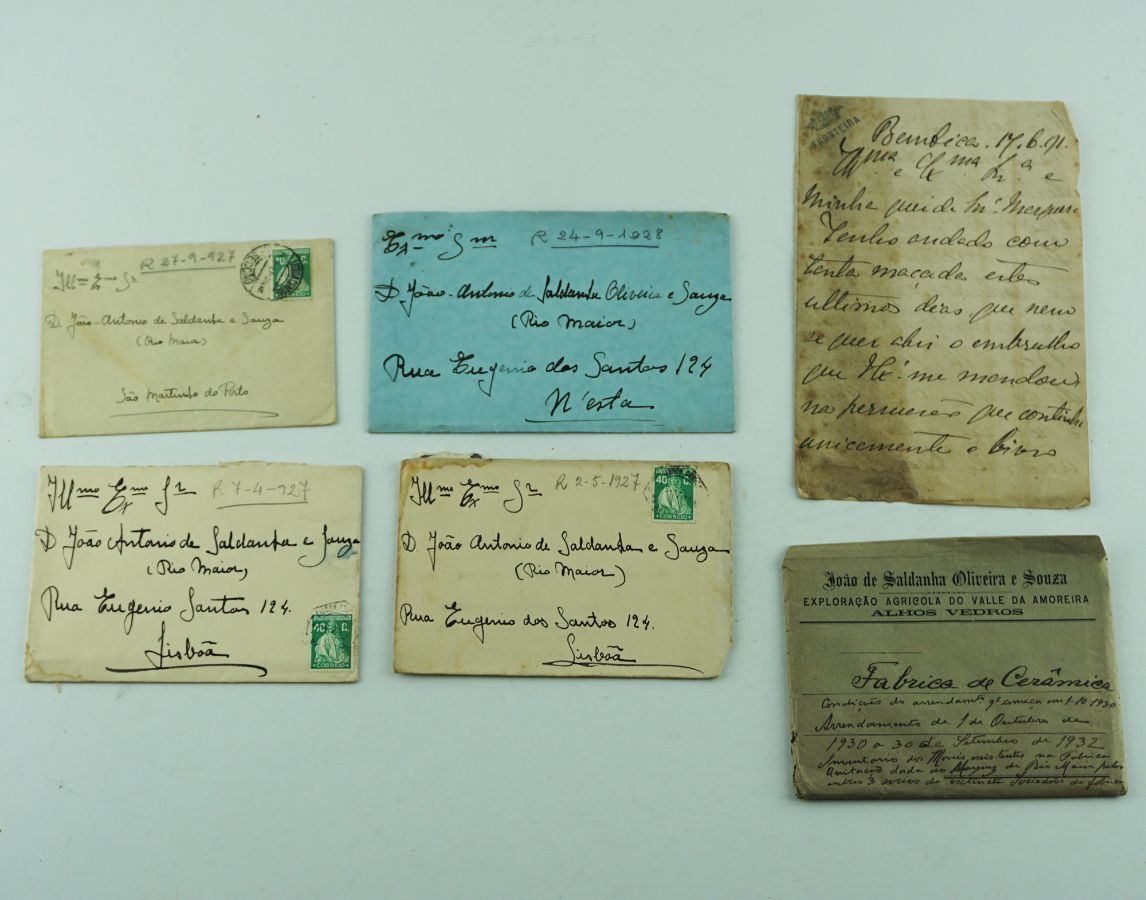 R 27-9-927
Illmo Exmo Sr
D. João-Antonio de Saldanha e Souza
(Rio Maior)
São Martinho do Porto
CORREIO
Exmo Snr
R 24-9-1928
D. João-Antonio de Saldanha Oliveira e Souza
(Rio Maior)
Rua Eugenio dos Santos 124
N'esta
Illmo Exmo Sr
R 7-4-927
D. João Antonio de Saldanha e Souza
(Rio Maior)
Rua Eugenio Santos 124.
Lisbôa
40 C.
CORREIO
Illmo Exmo Sr
R 2-5-1927
40 C.
CORREIO
D. João Antonio de Saldanha e Souza
(Rio Maior)
Rua Eugenio dos Santos 124.
Lisbôa
FRONTEIRA
Bemfica. 17.6.
Illma e Exma Sra e
Minha
Tenho andado com
tanta maçada estes
ultimos dias que nem
se quer abri o embrulho
que V. Exa me mandou,
na persuasão que continha
unicamente o livro
João de Saldanha Oliveira e Souza
EXPLORAÇÃO AGRICOLA DO VALLE DA AMOREIRA
ALHOS VEDROS
Fabrica de Cerâmica
Condições do arrendamto qe começa em 1-10-1930
Arrendamento de 1 de Outubro de
1930 a 30 de Setembro de 1932
Inventario dos Moveis existentes na Fabrica
Quitação dada ao Marquez de Rio Maior pelos
outros 3 socios da extincta Sociedade da fabrica